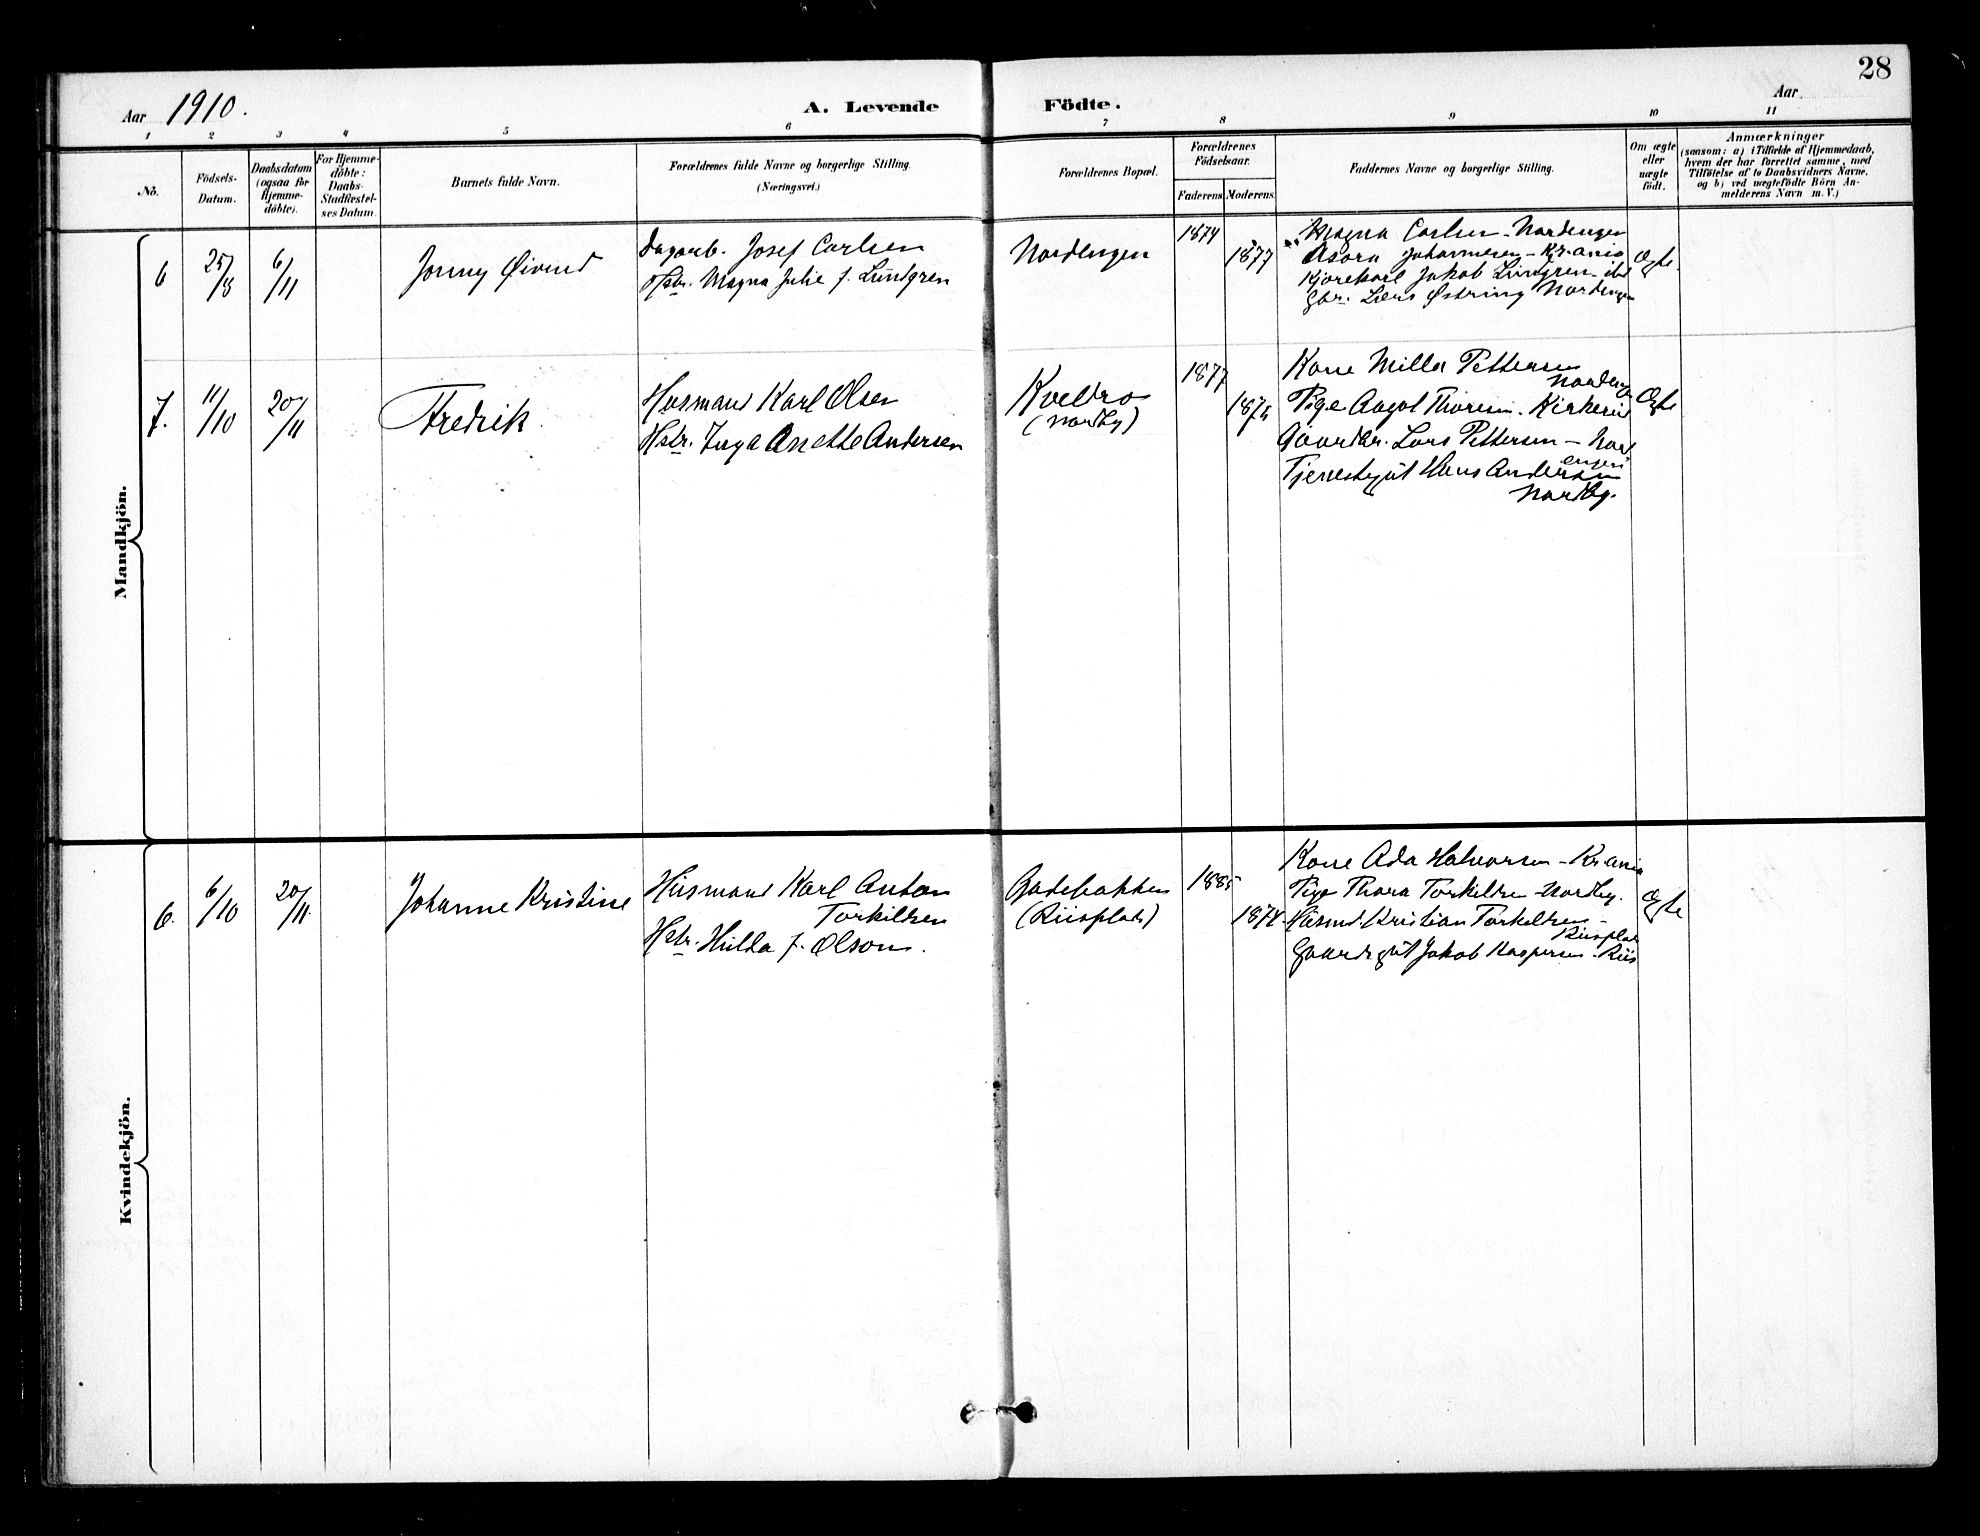 28
Aar 1910.
A. Levende
Födte.
Aar
1 2 3 4 5 6 7 8 9 10 11
No.
Födsels-
Datum.
Daabsdatum
(ogsaa for
Hjemme-
döbte).
For Hjemme-
döbte:
Daabs-
Stadfæstel-
ses Datum.
Barnets fulde Navn.
Forældrenes fulde Navne og borgerlige Stilling.
(Næringsvei.)
Forældrenes Bopæl.
Forældrenes
Födselsaar.
Faderens
Moderens
Faddernes Navne og borgerlige Stilling.
Om ægte
eller
uægte
født.
Anmærkninger
(saasom: a) i Tilfælde af Hjemmedaab,
hvem der har forrettet samme, med
Tilføielse af to Daabsvidners Navne,
og b) ved uægtefödte Börn An-
melderens Navn m. V.)
Mandkjön.
6
25/8
6/11
Jonny Øivind
Dagarb. Josef Carlsen
Hstr. Magna Julie f. Lundgren
Nordengen
1874
1877
Magna Carlsen - Nordengen
Johannesen - Kr.ania
Kjørekarl Jakob Lundgren - ibd
Gbr. Lars Østring Nordengen
Ægte
7.
11/10
20/11
Fredrik
Husmand Karl Olsen
Hstr. Inga Anette Andersen
Kvebro
(Nordby)
1877
1875
Kone Milla Pettersen
Nordeng
Pige Aagot Thoresen - Kirkerud
Gaardbr. Lars Pettersen - Nord
engen
Tjenestegut Hans Andersen
Nordby.
Ægte
Kvindekjön.
6.
6/10
20/11.
Johanne Kristine
Husmand Karl Anton
Torkildsen
Hstr. Hilda f. Olson.
Gadebakken
(Riisplads)
1885
1874.
Kone Ada Halvorsen - Kr.ania
Pige Thora Torkildsen - Nordby.
Husmd. Kristian Torkildsen -
Riisplads
Gaardsgut Jakob Kaspersen - Riis
Ægte